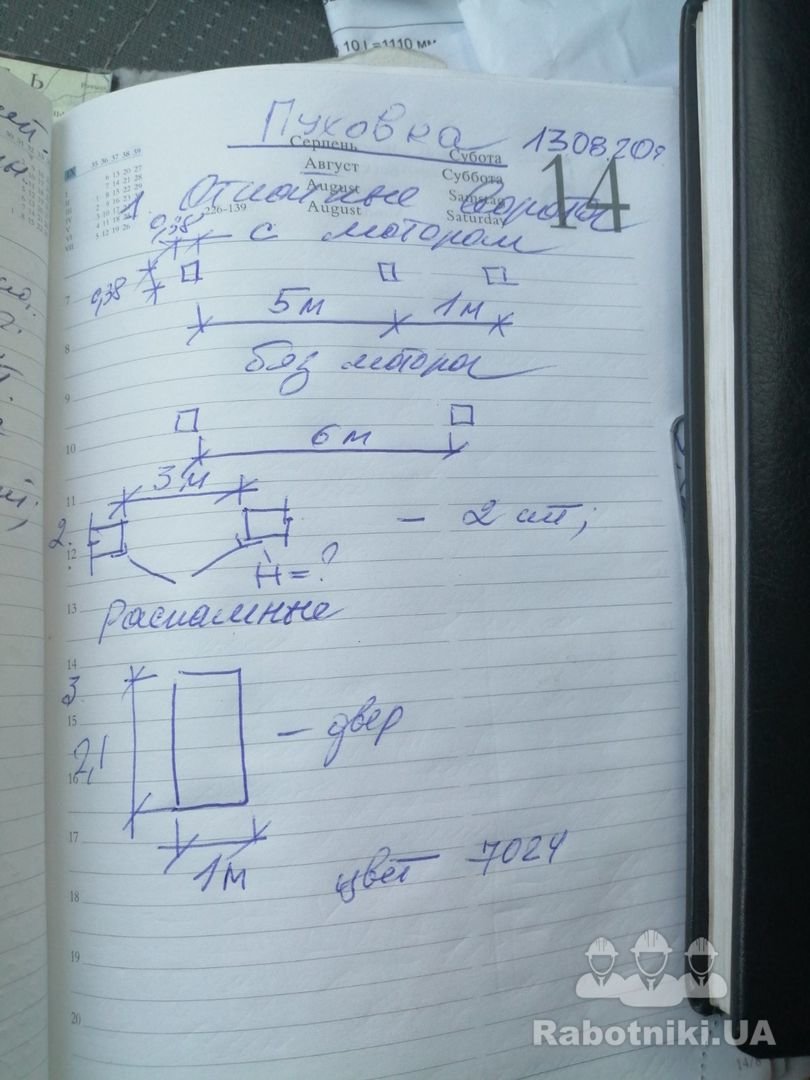 10 l =1110 мм
Пуховка 13.08.20г.
Серпень Субота
Август Суббота
August Samstag
August Saturday
14
226-139
IX 35 36 37 38 39
1. Откатные ворота
0,38 с мотором
0,38
7
5м 1м
8
без мотора
9
10
6м
11
3м
2. – 2 шт;
12
H=?
13
Распашные
14
3
15
– двер
2,1
16
17
1м
цвет 7024
18
19
20
Rabotniki.UA